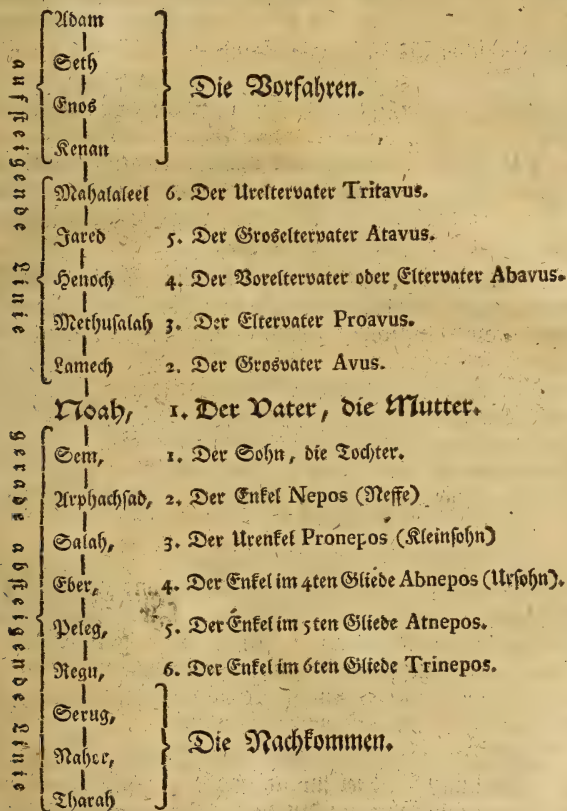 Adam
Seth
Enos
Kenan
Die Vorfahren.
aufsteigende Linie
Mahalaleel 6. Der Ureltervater Tritavus.
Jared 5. Der Groseltervater Atavus.
Henoch 4. Der Voreltervater oder Eltervater Abavus.
Methusalah 3. Der Eltervater Proavus.
Lamech 2. Der Grosvater Avus.
Noah, 1. Der Vater, die Mutter.
gerade absteigende Linie
Sem, 1. Der Sohn, die Tochter.
Arphachsad, 2. Der Enkel Nepos (Neffe)
Salah, 3. Der Urenkel Pronepos (Kleinsohn)
Eber, 4. Der Enkel im 4ten Gliede Abnepos (Ursohn).
Peleg, 5. Der Enkel im 5ten Gliede Atnepos.
Regu, 6. Der Enkel im 6ten Gliede Trinepos.
Serug,
Naher,
Tharah
Die Nachkommen.